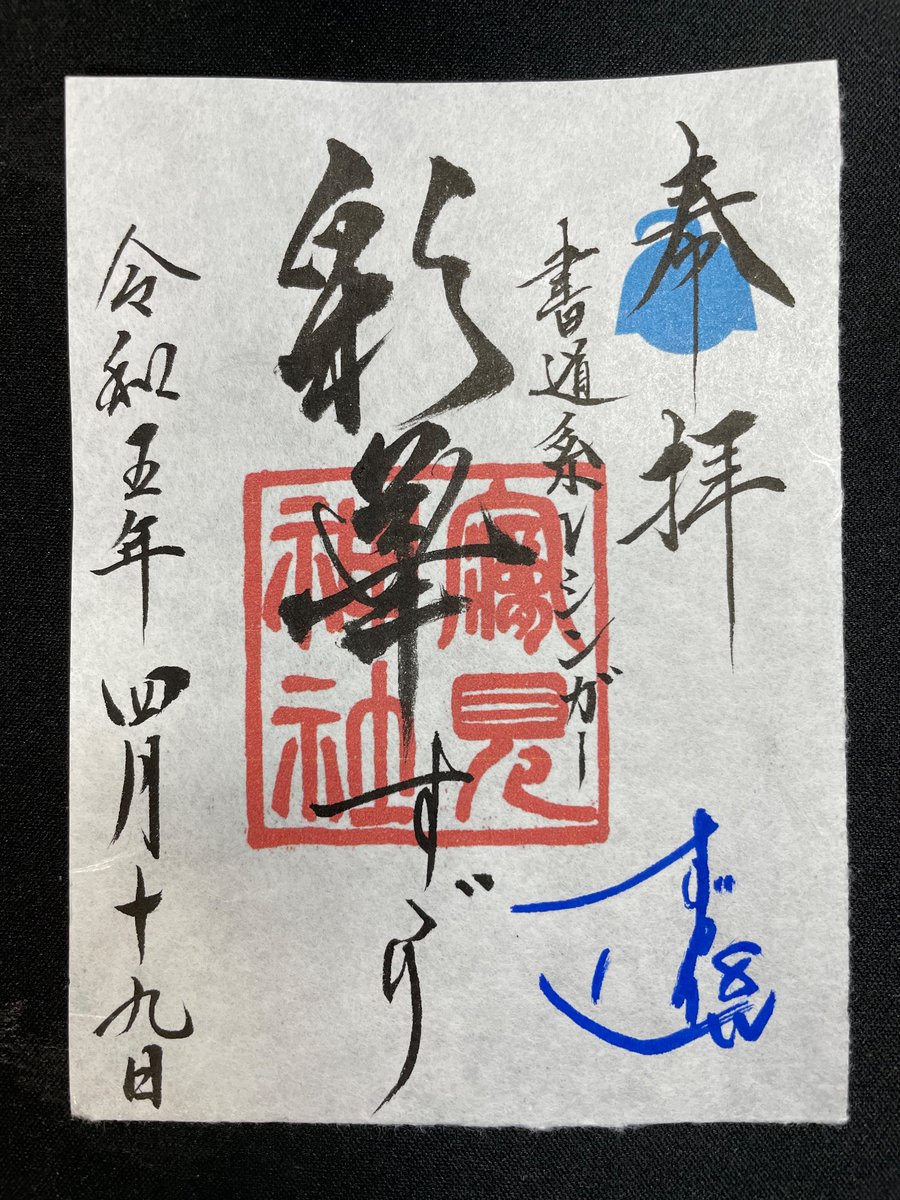 奉拝
書道系Vシンガー
彩華すゞり
見
神社
令和五年 四月十九日